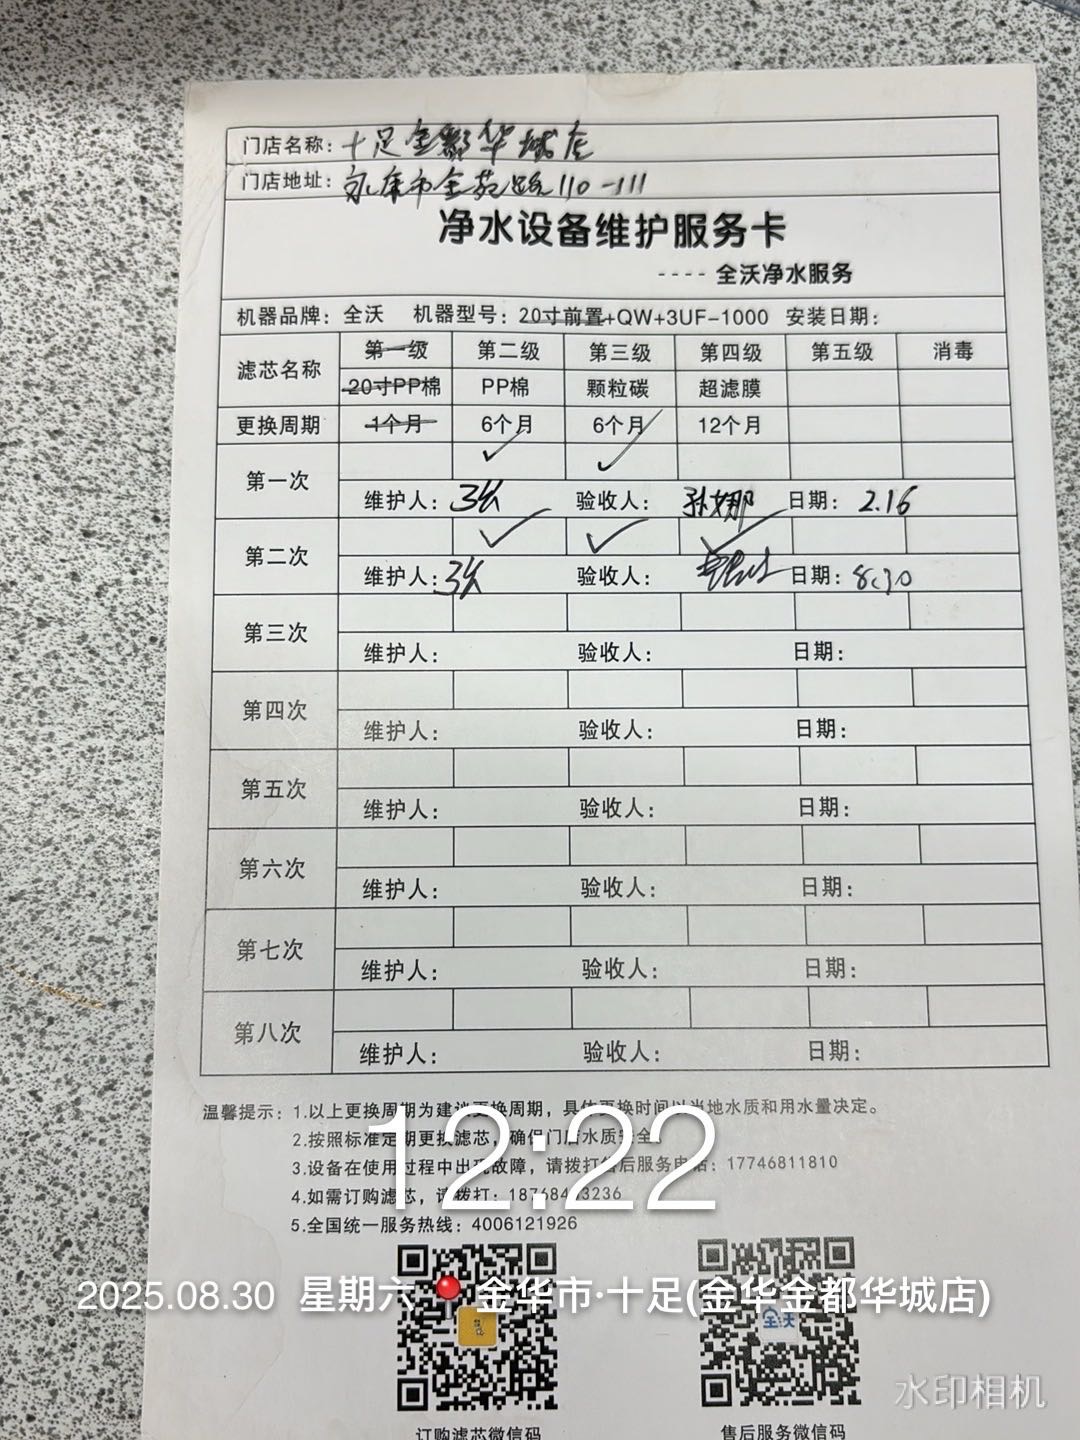 门店名称：十足金都华城店
门店地址：永康市金苑路110-111
净水设备维护服务卡
----全沃净水服务
机器品牌：全沃 机器型号：20寸前置+QW+3UF-1000 安装日期：
滤芯名称 第一级 第二级 第三级 第四级 第五级 消毒
20寸PP棉 PP棉 颗粒碳 超滤膜
更换周期 1个月 6个月 6个月 12个月
第一次
维护人： 验收人：孙娜 日期：2.16
第二次
维护人： 验收人： 日期：8.30
第三次
维护人： 验收人： 日期：
第四次
维护人： 验收人： 日期：
第五次
维护人： 验收人： 日期：
第六次
维护人： 验收人： 日期：
第七次
维护人： 验收人： 日期：
第八次
维护人： 验收人： 日期：
温馨提示：1.以上更换周期为建议更换周期，具体更换时间以当地水质和用水量决定。
2.按照标准定期更换滤芯，确保门店水质安全。
3.设备在使用过程中出现故障，请拨打售后服务电话：17746811810
4.如需订购滤芯，请拨打：
5.全国统一服务热线：4006121926
12:22
2025.08.30 星期六 金华市·十足(金华金都华城店)
全沃
水印相机
订购滤芯微信码 售后服务微信码